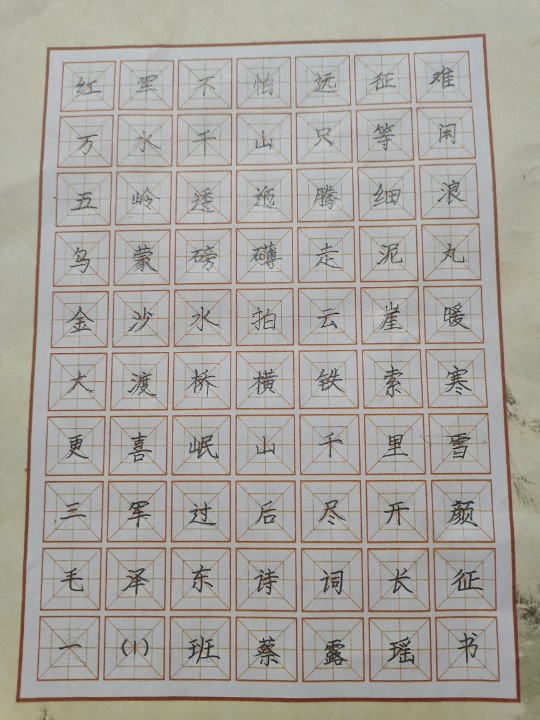 红军不怕远征难
万水千山只等闲
五岭逶迤腾细浪
乌蒙磅礴走泥丸
金沙水拍云崖暖
大渡桥横铁索寒
更喜岷山千里雪
三军过后尽开颜
毛泽东诗词长征
一(1)班蔡露瑶书